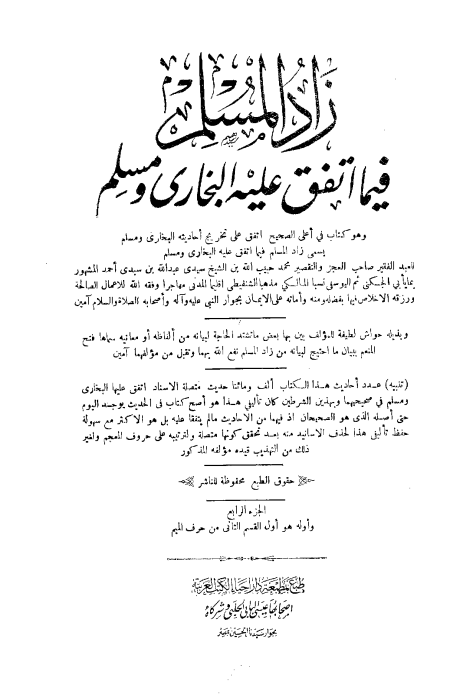 زاد المسلم
فيما اتفق عليه البخارى ومسلم
وهو كتاب في أعلى الصحيح اتفق على تخريج أحاديثه البخارى ومسلم
يسمى زاد المسلم فيما اتفق عليه البخارى ومسلم
لعبيد الفقير صاحب العجز والتقصير محمد حبيب الله بن الشيخ سيدى عبدالله بن سيدى أحمد المشهور
بمايأبى الجكنى ثم اليوسفى نسبا المالكى مذهبا الشنقيطى إقليما المدنى مهاجرا وفقه الله للأعمال الصالحة
ورزقه الاخلاص فيها بفضله ومنه وأماته على الايمان بجوار النبى عليه وآله وأصحابه الصلاة والسلام آمين
وبذيله حواش لطيفة للمؤلف بين بها بعض ماتشتد الحاجة لبيانه من ألفاظه أو معانيه سماها فتح
المنعم ببيان ما احتيج لبيانه من زاد المسلم نفع الله بهما وتقبل من مؤلفهما آمين
(تنبيه) عدد أحاديث هذا الكتاب ألف ومائتا حديث متصلة الاسناد اتفق عليها البخارى
ومسلم في صحيحيهما وبهذين الشرطين كان تأليفى هذا هو أصح كتاب في الحديث يوجد اليوم
حتى أصله الذى هو الصحيحان اذ فيهما من الاحاديث مالم يتفقا عليه بل هو الاكثر مع سهولة
حفظ تأليفى هذا لحذف الاسانيد منه بعد تحقق كونها متصلة ولترتيبه على حروف المعجم ولغير
ذلك من التهذيب قيده مؤلفه المذكور
حقوق الطبع محفوظة للناشر
الجزء الرابع
وأوله هو أول القسم الثانى من حرف الميم
طبع بمطبعة دار إحياء الكتب العربية
اصحابها عيسى البابى الحلبى وشركاه
بجوار سيدنا الحسين بمصر